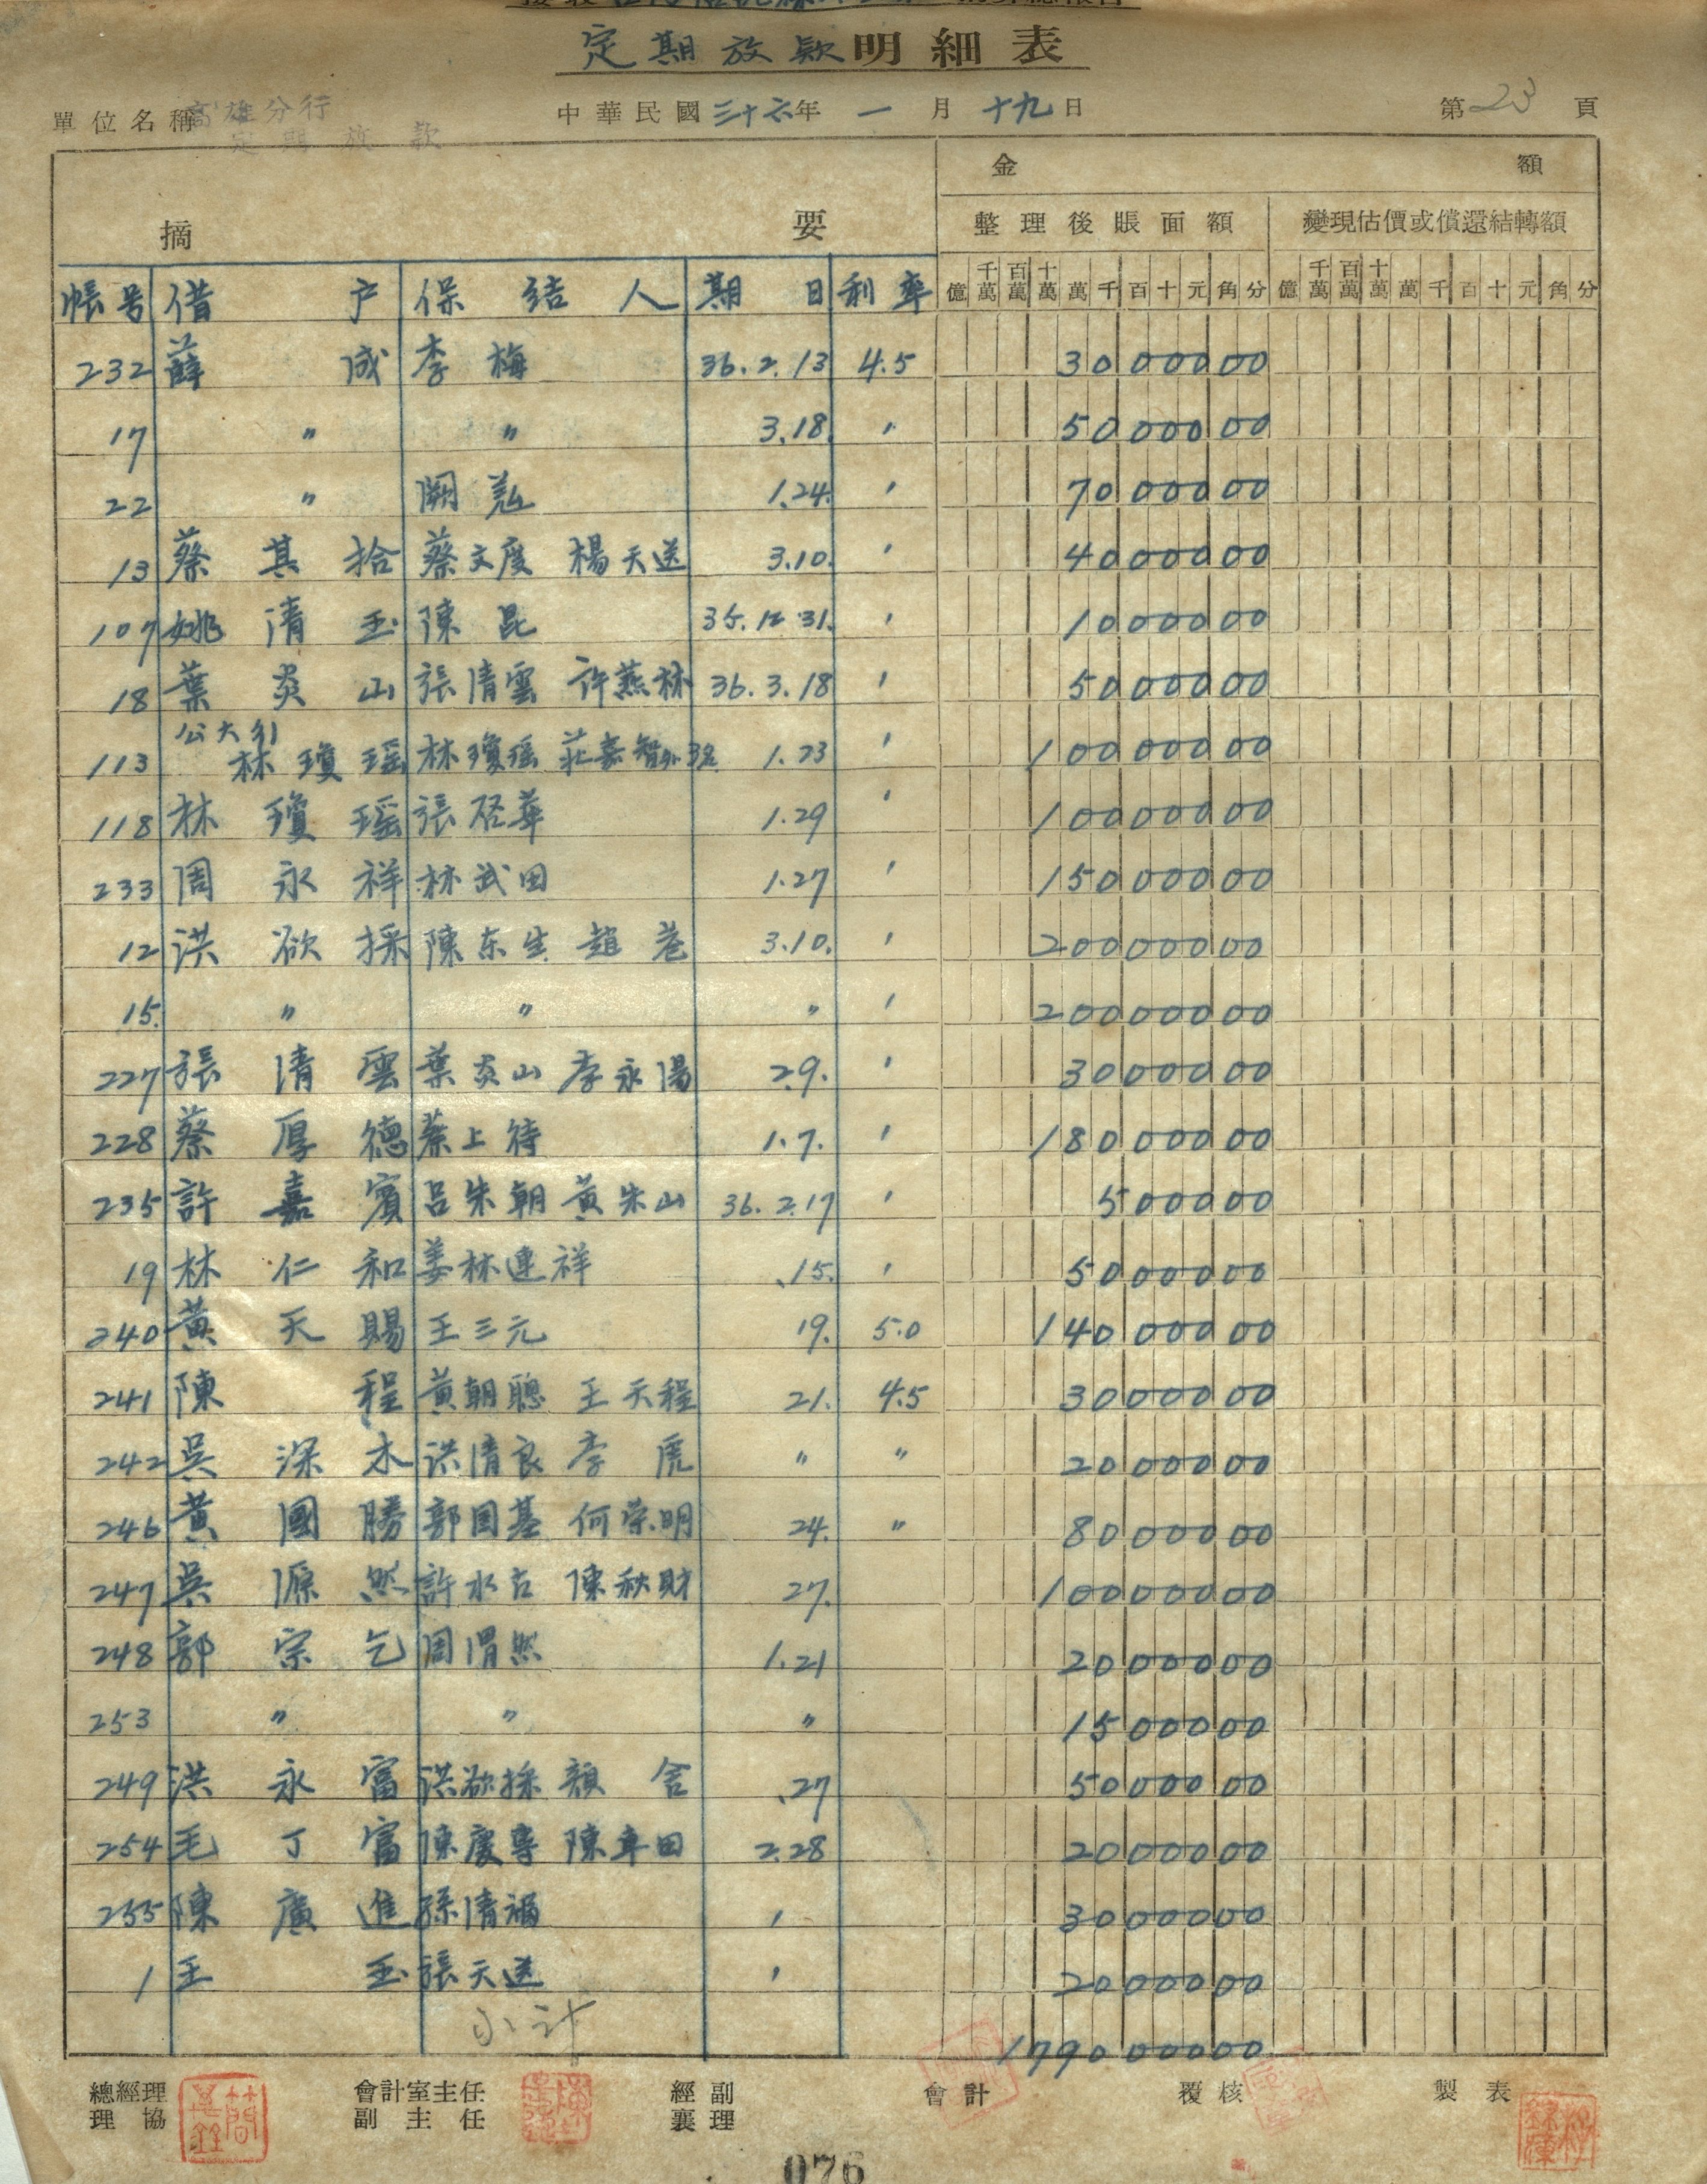 定期放款明細表
單位名稱 高雄分行 中華民國三十六年一月十九日 第23頁
定期放款
摘要 金額
整理後賬面額 變現估價或償還結轉額
帳号 借戶 保結人 期日 利率 億 千萬 百萬 十萬 萬 千 百 十 元 角 分 億 千萬 百萬 十萬 萬 千 百 十 元 角 分
232 薛成 李梅 36.2.13 4.5 3000000
17 〃 〃 3.18. 〃 5000000
22 〃 闕 1.24. 〃 7000000
13 蔡其拾 蔡文度 楊天送 3.10. 〃 4000000
107 姚清玉 陳昆 35.12.31. 〃 1000000
18 葉炎山 張清雲 許燕林 36.3.18 〃 5000000
公大行
113 林瓊瑶 林瓊瑶 莊嘉智外3名 1.23 〃 10000000
118 林瓊瑶 張啓華 1.29 〃 10000000
233 周永祥 林武田 1.27 〃 15000000
12 洪欲採 陳东生 趙蒼 3.10. 〃 20000000
15. 〃 〃 〃 〃 20000000
227 張清雲 葉炎山 李永湯 2.9. 〃 3000000
228 蔡厚德 蔡上待 1.7. 〃 18000000
235 許嘉賓 呂朱朝 黃朱山 36.2.17 〃 500000
19 林仁和 姜林連祥 .15. 〃 5000000
240 黃天賜 王三元 19. 5.0 14000000
241 陳程 黃朝聰 王天程 21. 4.5 3000000
242 吳深木 洪清良 李虎 〃 〃 2000000
246 黃國勝 郭国基 何荣明 24. 〃 8000000
247 吳源然 許水古 陳秋財 27. 10000000
248 郭宗乞 周渭然 1.21 2000000
253 〃 〃 〃 1500000
249 洪永富 洪欲採 顏舍 .27 5000000
254 毛丁富 陳慶專 陳車田 2.28 2000000
255 陳廣進 孫清福 〃 3000000
1 王玉 張天送 〃 2000000
小計 179000000
總經理 會計室主任 經副 會計 覆核 製表
理協 副主任 襄理
076